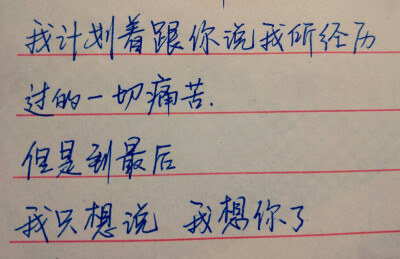 我计划着跟你说我所经历
过的一切痛苦.
但是到最后
我只想说 我想你了